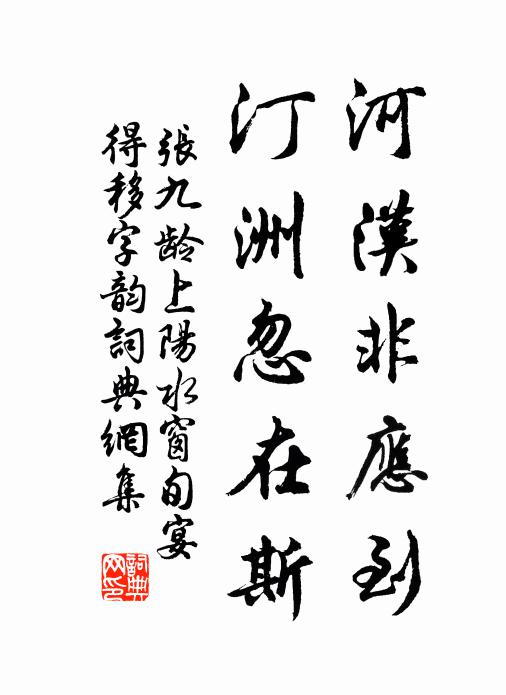 河漢非應到
汀洲忽在斯
張九龄上陽水窗旬宴
得移字韵詞典網集
詞典
网印